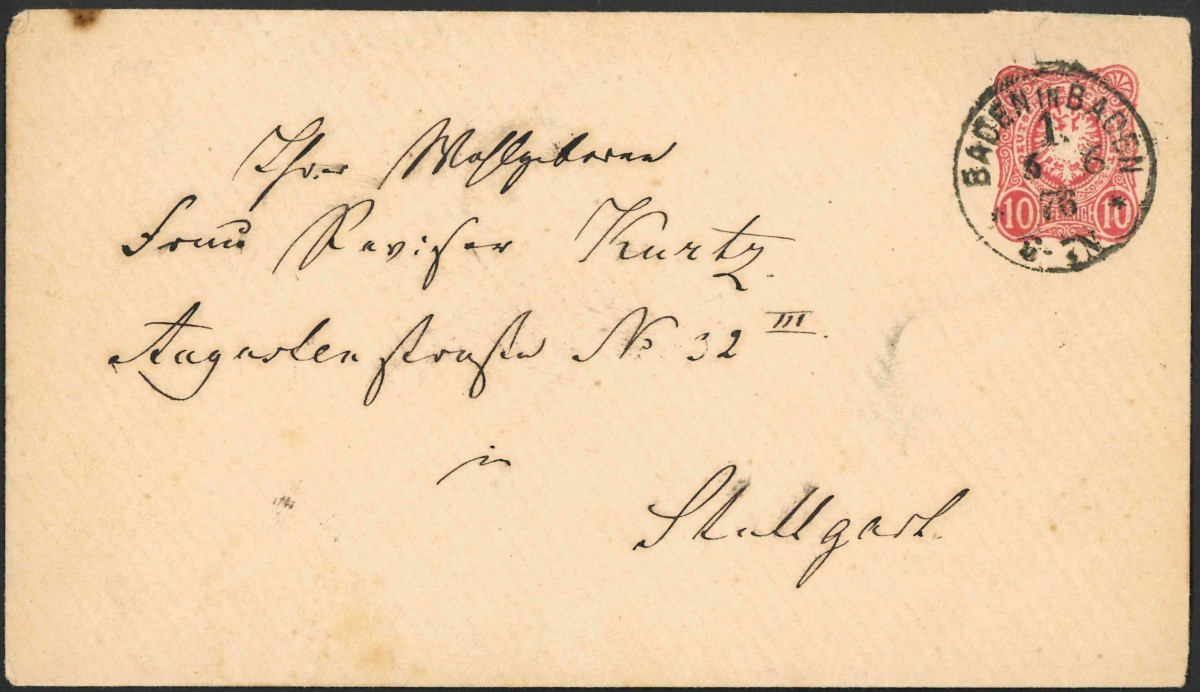 Ihro Wohlgeboren
Frau Revisor Kurtz
Augustenstraße № 32 III.
in
Stuttgart.
BADEN IN BADEN
1.
5 6
76
10 PFENNIGE 10